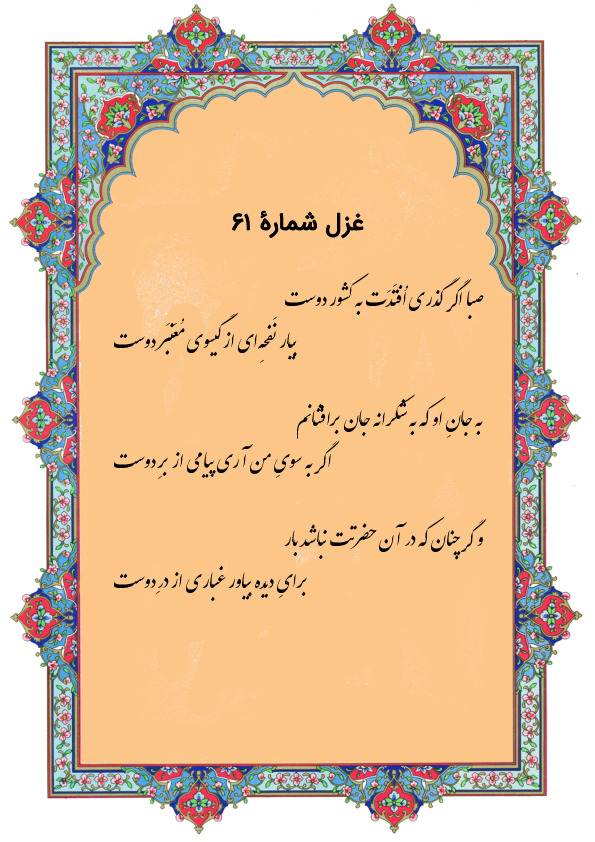 غزل شمارهٔ ۶۱
صبا اگر گذری اُفتَدَت به کشور دوست
بیار نَفحِه‌ای از گیسوی مُعَنبَر دوست
به جانِ او که به شکرانه جان برافشانم
اگر به سویِ من آری پیامی از برِ دوست
و گر چنان که در آن حضرتت نباشد بار
برایِ دیده بیاور غباری از درِ دوست